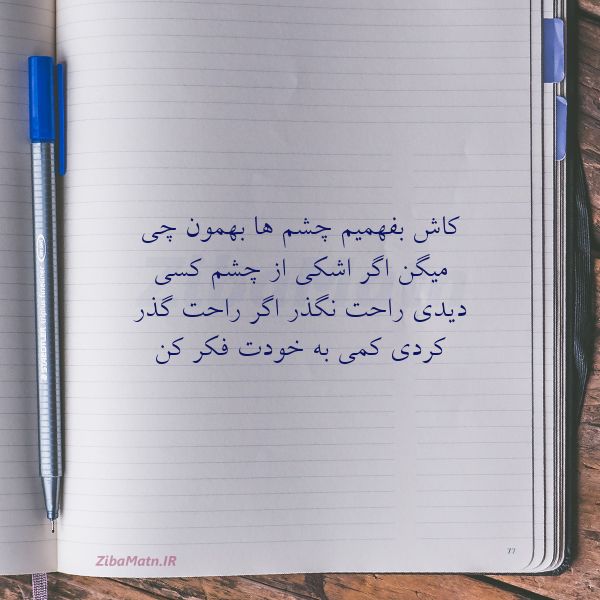 کاش بفهمیم چشم ها بهمون چی
میگن اگر اشکی از چشم کسی
دیدی راحت نگذر اگر راحت گذر
کردی کمی به خودت فکر کن
ZibaMatn.IR
77